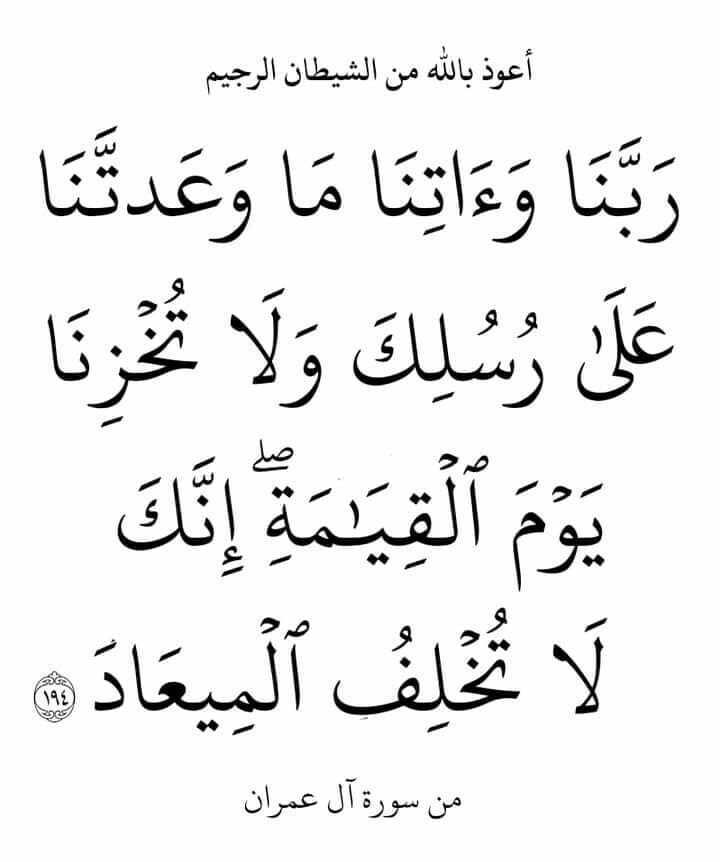 أعوذ بالله من الشيطان الرجيم
رَبَّنَا وَءَاتِنَا مَا وَعَدتَّنَا
عَلَىٰ رُسُلِكَ وَلَا تُخۡزِنَا
يَوۡمَ ٱلۡقِيَٰمَةِۖ إِنَّكَ
لَا تُخۡلِفُ ٱلۡمِيعَادَ ١٩٤
من سورة آل عمران